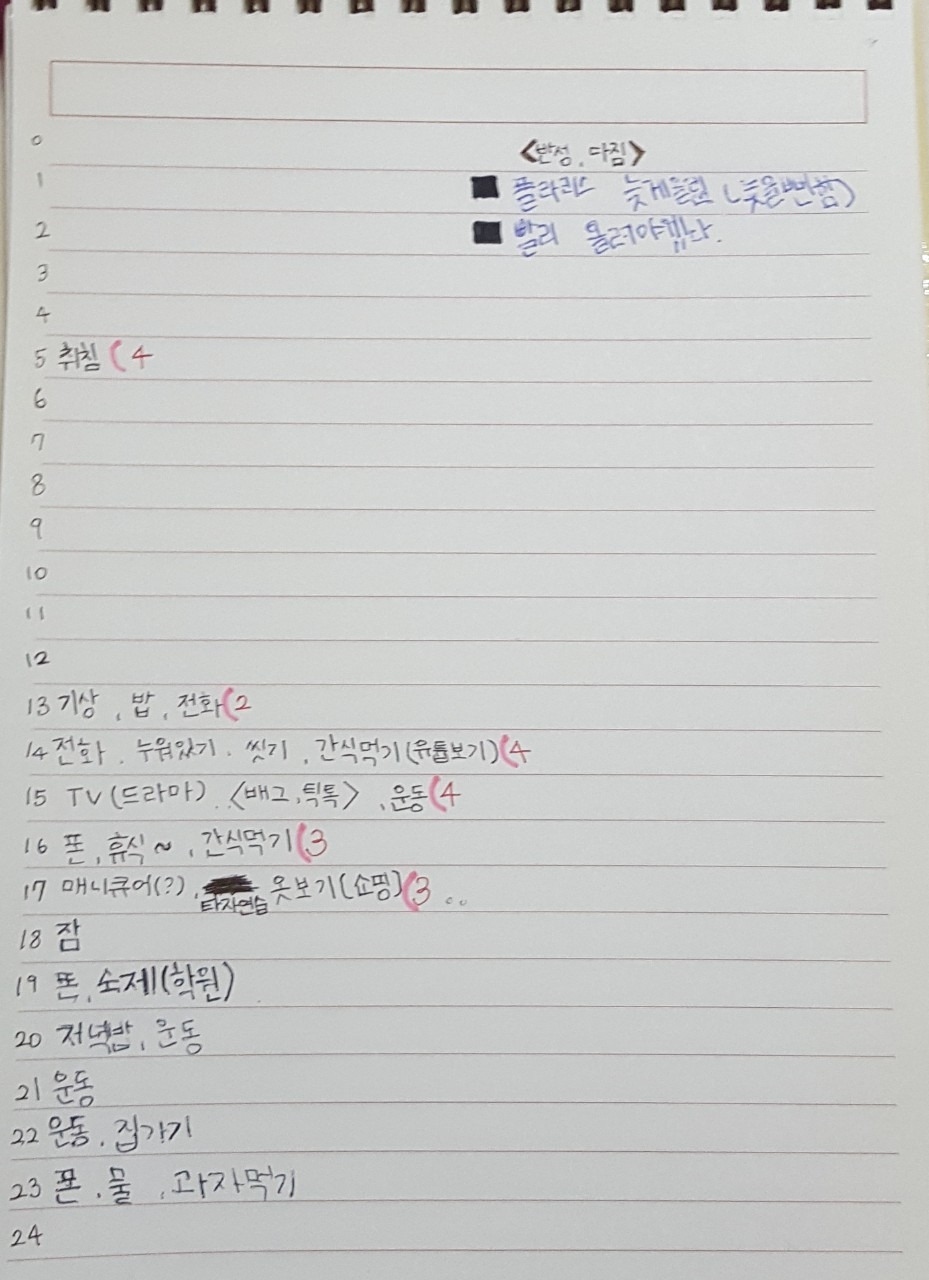 0
<반성, 다짐>
1
■ 플라리스 늦게들렸 (늦을뻔함)
2
■ 빨리 올려야겠다.
3
4
5 취침 (4
6
7
8
9
10
11
12
13 기상, 밥, 전화(2
14 전화, 누워있기, 씻기, 간식먹기(유튭보기)(4
15 TV(드라마), <배그,틱톡>, 운동(4
16 폰, 휴식~, 간식먹기(3
17 매니큐어(?), 타자연습 옷보기(쇼핑)(3 ..
18 잠
19 폰, 숙제(학원)
20 저녁밥, 운동
21 운동
22 운동, 집가기
23 폰, 물, 과자먹기
24